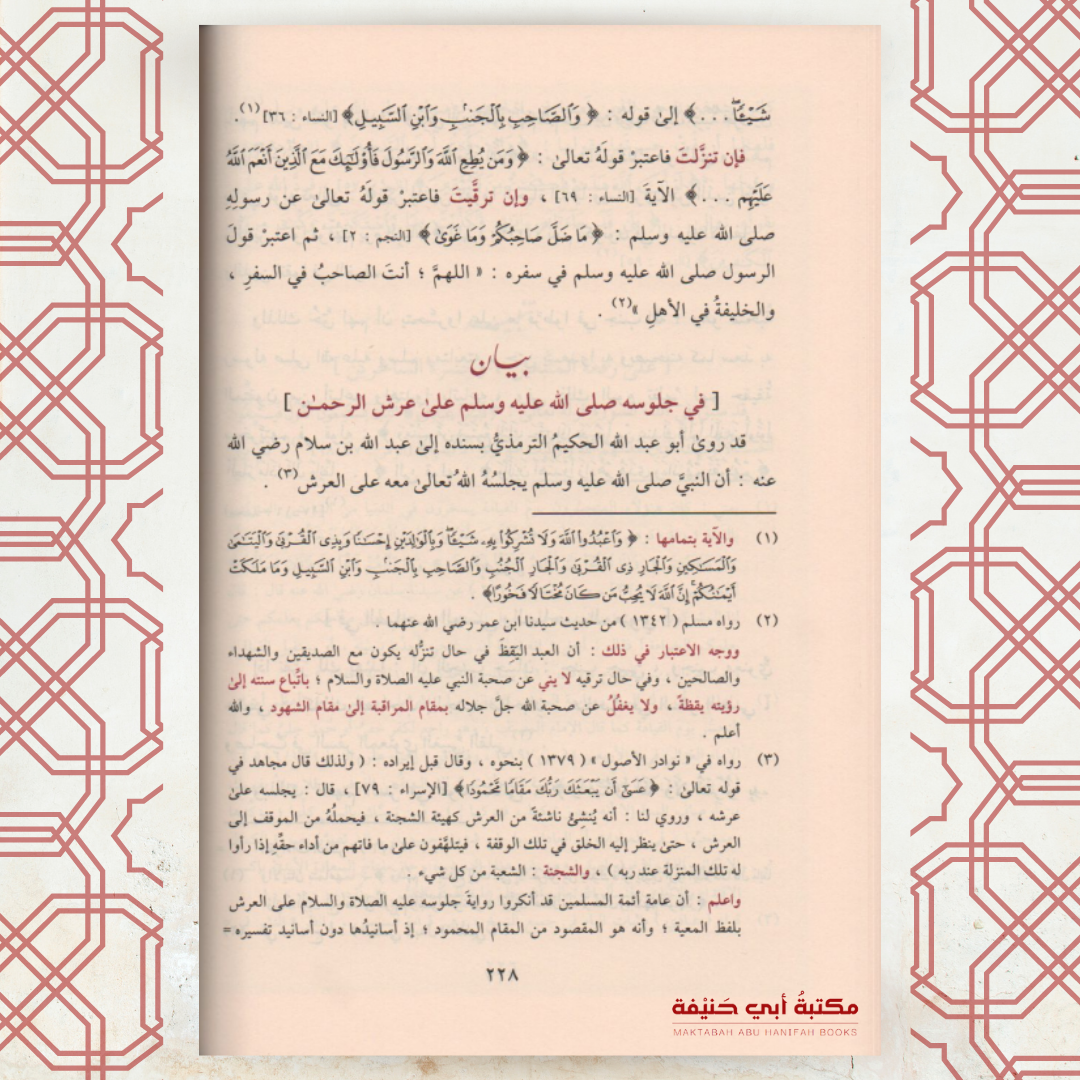 شَيْئًا . . .﴾ إلىٰ قوله : ﴿ وَالصَّاحِبِ بِالْجَنْبِ وَابْنِ السَّبِيلِ﴾ [النساء : ٣٦] (١) .
فإن تنزَّلتَ فاعتبرْ قولَهُ تعالىٰ : ﴿ وَمَن يُطِعِ اللَّهَ وَالرَّسُولَ فَأُولَٰئِكَ مَعَ الَّذِينَ أَنْعَمَ اللَّهُ
عَلَيْهِم . . .﴾ الآيةَ [النساء : ٦٩] ، وإن ترقَّيتَ فاعتبرْ قولَهُ تعالىٰ عن رسولِهِ
صلى الله عليه وسلم : ﴿ مَا ضَلَّ صَاحِبُكُمْ وَمَا غَوَىٰ﴾ [النجم : ٢] ، ثم اعتبرْ قولَ
الرسول صلى الله عليه وسلم في سفره : « اللهمَّ ؛ أنتَ الصاحبُ في السفرِ ،
والخليفةُ في الأهلِ »(٢) .
بيان
[ في جلوسه صلى الله عليه وسلم علىٰ عرش الرحمـٰن ]
قد روىٰ أبو عبد الله الحكيمُ الترمذيُّ بسنده إلىٰ عبد الله بن سلام رضي الله
عنه : أن النبيَّ صلى الله عليه وسلم يجلسُهُ اللهُ تعالىٰ معه على العرش(٣) .
(١) والآية بتمامها : ﴿ وَاعْبُدُوا اللَّهَ وَلَا تُشْرِكُوا بِهِ شَيْئًا وَبِالْوَالِدَيْنِ إِحْسَانًا وَبِذِي الْقُرْبَىٰ وَالْيَتَامَىٰ
وَالْمَسَاكِينِ وَالْجَارِ ذِي الْقُرْبَىٰ وَالْجَارِ الْجُنُبِ وَالصَّاحِبِ بِالْجَنْبِ وَابْنِ السَّبِيلِ وَمَا مَلَكَتْ
أَيْمَانُكُمْ إِنَّ اللَّهَ لَا يُحِبُّ مَن كَانَ مُخْتَالًا فَخُورًا﴾ .
(٢) رواه مسلم ( ١٣٤٢ ) من حديث سيدنا ابن عمر رضي الله عنهما .
ووجه الاعتبار في ذلك : أن العبد اليَقِظَ في حال تنزُّله يكون مع الصديقين والشهداء
والصالحين ، وفي حال ترقيه لا يني عن صحبة النبي عليه الصلاة والسلام ؛ باتِّباع سنته إلىٰ
رؤيته يقظة ، ولا يغفُلُ عن صحبة الله جلَّ جلاله بمقام المراقبة إلىٰ مقام الشهود ، والله
أعلم .
(٣) رواه في « نوادر الأصول » ( ١٣٧٩ ) بنحوه ، وقال قبل إيراده : ( ولذلك قال مجاهد في
قوله تعالىٰ : ﴿عَسَىٰ أَن يَبْعَثَكَ رَبُّكَ مَقَامًا مَّحْمُودًا﴾ [الإسراء : ٧٩] ، قال : يجلسه علىٰ
عرشه ، وروي لنا : أنه يُنشِئُ ناشئةً من العرش كهيئة الشجنة ، فيحملُهُ من الموقف إلى
العرش ، حتىٰ ينظر إليه الخلق في تلك الوقفة ، فيتلهَّفون علىٰ ما فاتهم من أداء حقِّهِ إذا رأوا
له تلك المنزلة عند ربه ) ، والشجنة : الشعبة من كل شيء .
واعلم : أن عامة أئمة المسلمين قد أنكروا روايةَ جلوسه عليه الصلاة والسلام على العرش
بلفظ المعية ؛ وأنه هو المقصود من المقام المحمود ؛ إذ أسانيدُها دون أسانيد تفسيره =
٢٢٨
مكتبةُ أبي حَنيْفة
MAKTABAH ABU HANIFAH BOOKS